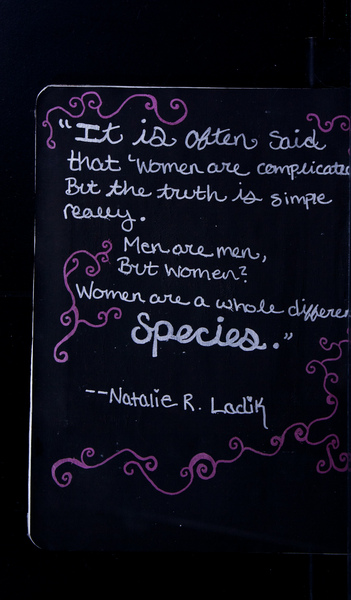 "It is often said
that 'Women are complicate
But the truth is simple
really.
Men are men,
But women?
Women are a whole differen
Species."
--Natalie R. Ladik